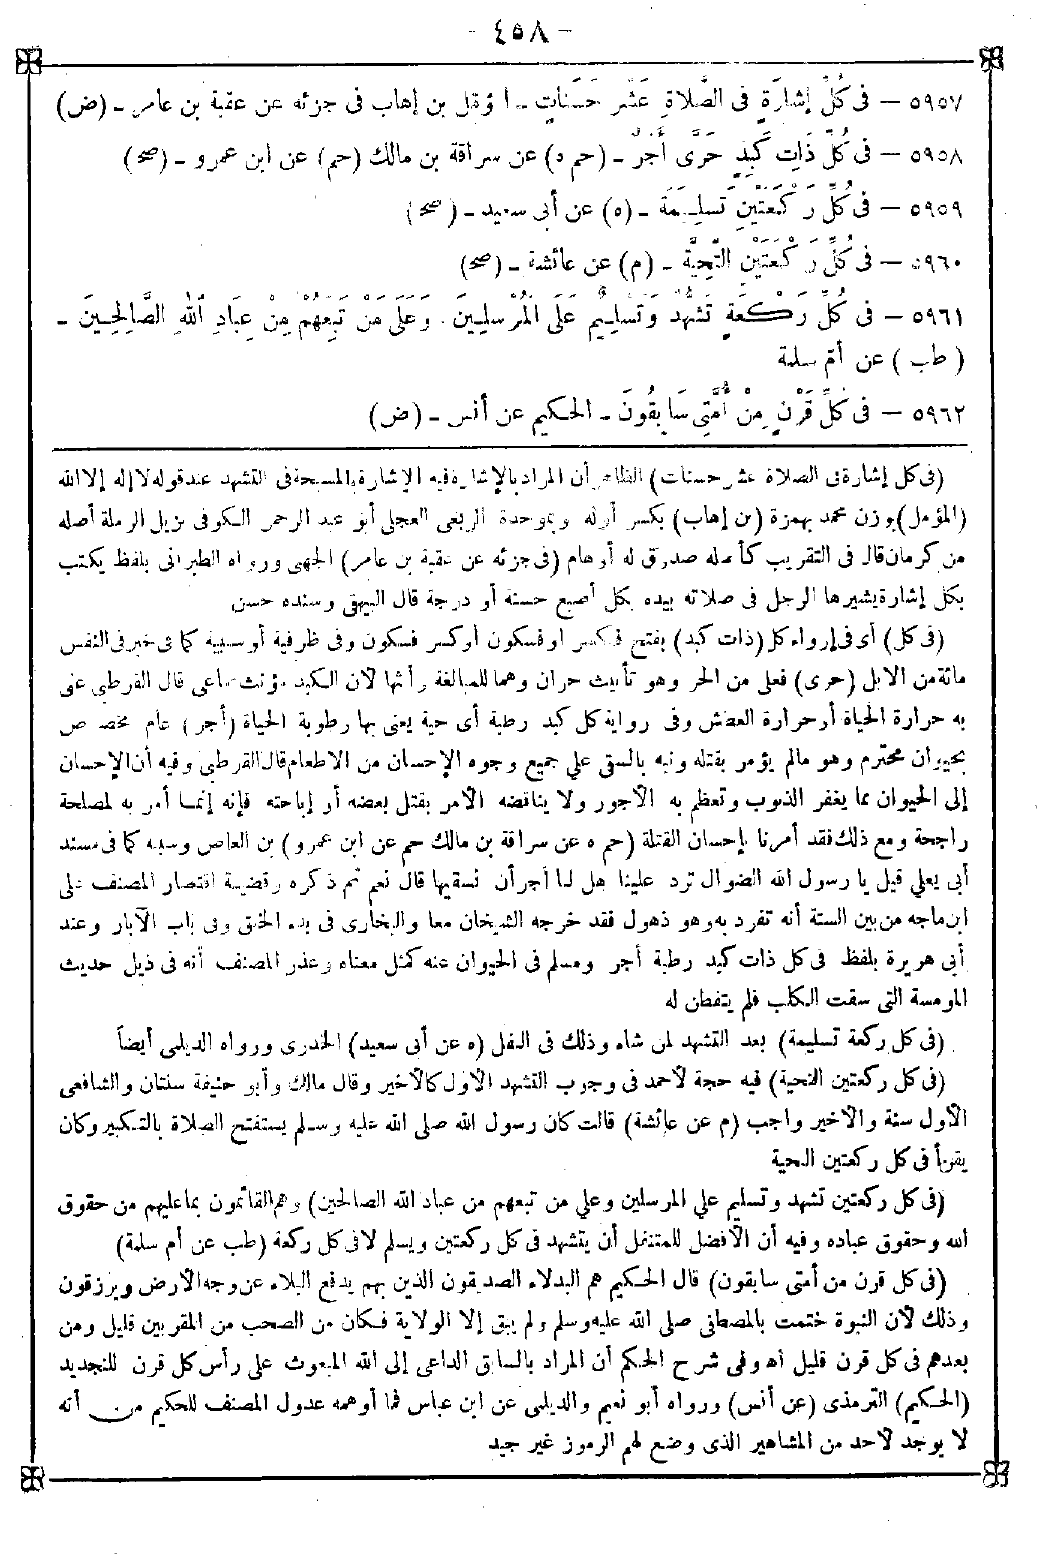 - ٤٥٨ -
٥٩٥٧ – فى كُلِّ إشارَةٍ فى الصَّلاةِ عَشْرُ حَسَنَاتٍ - المؤمل بن إهاب فى جزئه عن عقبة بن عامر - (ض)
٥٩٥٨ – فى كُلِّ ذَاتِ كَبِدٍ حَرَّى أَجْرٌ - (حم ه) عن سراقة بن مالك (حم) عن ابن عمرو - (صح)
٥٩٥٩ – فى كُلِّ رَكْعَتَيْنِ تَسْلِيمَةٌ - (ه) عن أبى سعيد - (صح)
٥٩٦٠ – فى كُلِّ رَكْعَتَيْنِ التَّحِيَّةُ - (م) عن عائشة - (صح)
٥٩٦١ – فى كُلِّ رَكْعَةٍ تَشَهُّدٌ وَتَسْلِيمٌ عَلَى الْمُرْسَلِينَ وَعَلَى مَنْ تَبِعَهُمْ مِنْ عِبَادِ اللهِ الصَّالِحِينَ -
(طب) عن أم سلمة
٥٩٦٢ – فى كُلِّ قَرْنٍ مِنْ أُمَّتِى سَابِقُونَ - الحكيم عن أنس - (ض)
(فى كل إشارة فى الصلاة عشر حسنات) الظاهر أن المراد بالإشارة فيه الإشارة بالمسبحة فى التشهد عند قوله لا إله إلا الله
(المؤمل) بوزن محمد بهمزة (بن إهاب) بكسر أوله وبموحدة الربعى العجلى أبو عبد الرحمن الكوفى نزيل الرملة أصله
من كرمان قال فى التقريب كأصله صدوق له أوهام (فى جزئه عن عقبة بن عامر) الجهنى ورواه الطبرانى بلفظ يكتب
بكل إشارة يشيرها الرجل فى صلاته بيده بكل أصبع حسنة أو درجة قال الهيتمى وسنده حسن
(فى كل) أى فى إرواء كل (ذات كبد) بفتح فكسر أو فسكون أو كسر فسكون وفى ظرفية أو سببية كما فى خبر فى النفس
مائة من الابل (حرى) فعلى من الحر وهو تأنيث حران وهما للمبالغة وأنثها لأن الكبد مؤنث سماعى قال القرطبى عنى
به حرارة الحياة أو حرارة العطش وفى رواية كل كبد رطبة أى حية يعنى بها رطوبة الحياة (أجر) عام مخصوص
بحيوان محترم وهو مالم يؤمر بقتله ونبه بالسقى على جميع وجوه الإحسان من الاطعام قال القرطبى وفيه أن الإحسان
إلى الحيوان مما يغفر الذنوب وتعظم به الأجور ولا يناقضه الأمر بقتل بعضه أو إباحته فإنه إنما أمر به لمصلحة
راجحة ومع ذلك فقد أمرنا بإحسان القتلة (حم ه عن سراقة بن مالك حم عن ابن عمرو) بن العاص وسببه كما فى مسند
أبى يعلى قيل يا رسول الله الضوال ترد علينا هل لنا أجر أن نسقيها قال نعم ثم ذكره وقضية اقتصار المصنف على
ابن ماجه من بين الستة أنه تفرد به وهو ذهول فقد خرجه الشيخان معا والبخارى فى بدء الخلق وفى باب الآبار وعند
أبى هريرة بلفظ فى كل ذات كبد رطبة أجر ومسلم فى الحيوان عنه كمثل معناه وعذر المصنف أنه فى ذيل حديث
المومسة التى سقت الكلب فلم يتفطن له
(فى كل ركعة تسليمة) بعد التشهد لمن شاء وذلك فى النفل (ه عن أبى سعيد) الخدرى ورواه الديلمى أيضا
(فى كل ركعتين التحية) فيه حجة لأحمد فى وجوب التشهد الأول كالأخير وقال مالك وأبو حنيفة سنتان والشافعى
الأول سنة والأخير واجب (م عن عائشة) قالت كان رسول الله صلى الله عليه وسلم يستفتح الصلاة بالتكبير وكان
يقرأ فى كل ركعتين التحية
(فى كل ركعتين تشهد وتسليم على المرسلين وعلى من تبعهم من عباد الله الصالحين) وهم القائمون بما عليهم من حقوق
الله وحقوق عباده وفيه أن الأفضل للمتنفل أن يتشهد فى كل ركعتين ويسلم لا فى كل ركعة (طب عن أم سلمة)
(فى كل قرن من أمتى سابقون) قال الحكيم هم البدلاء الصديقون الذين بهم يدفع البلاء عن وجه الأرض ويرزقون
وذلك لأن النبوة ختمت بالمصطفى صلى الله عليه وسلم ولم يبق إلا الولاية فكان من الصحب من المقربين قليل ومن
بعدهم فى كل قرن قليل اه وفى شرح الحكم أن المراد بالسابق الداعى إلى الله المبعوث على رأس كل قرن للتجديد
(الحكيم) الترمذى (عن أنس) ورواه أبو نعيم والديلمى عن ابن عباس فما أوهمه عدول المصنف للحكيم من أنه
لا يوجد لأحد من المشاهير الذى وضع لهم الرموز غير جيد